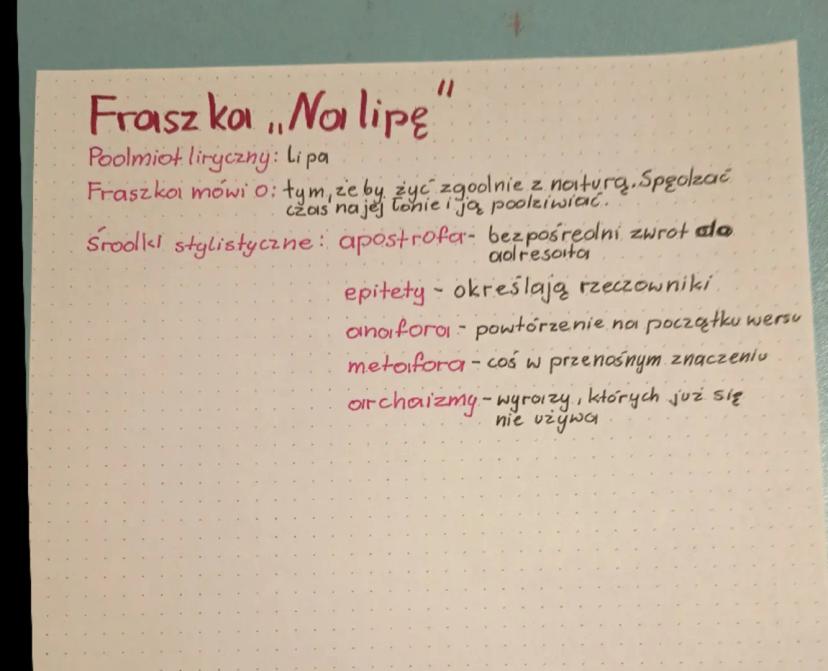 Fraszka „Na lipę"
Podmiot liryczny: lipa
Fraszka mówi o: tym, żeby żyć zgodnie z naturą. Spędzać
czas na jej łonie i ją podziwiać.
Środki stylistyczne: apostrofa - bezpośredni zwrot do
adresata
epitety - określają rzeczowniki
anafora - powtórzenie na początku wersu
metafora - coś w przenośnym znaczeniu
archaizmy - wyrazy, których już się
nie używa